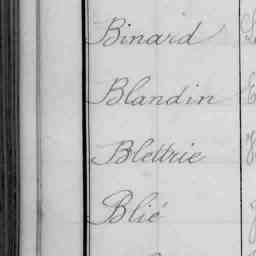 Binard
Blandin
Blettrie
Blié